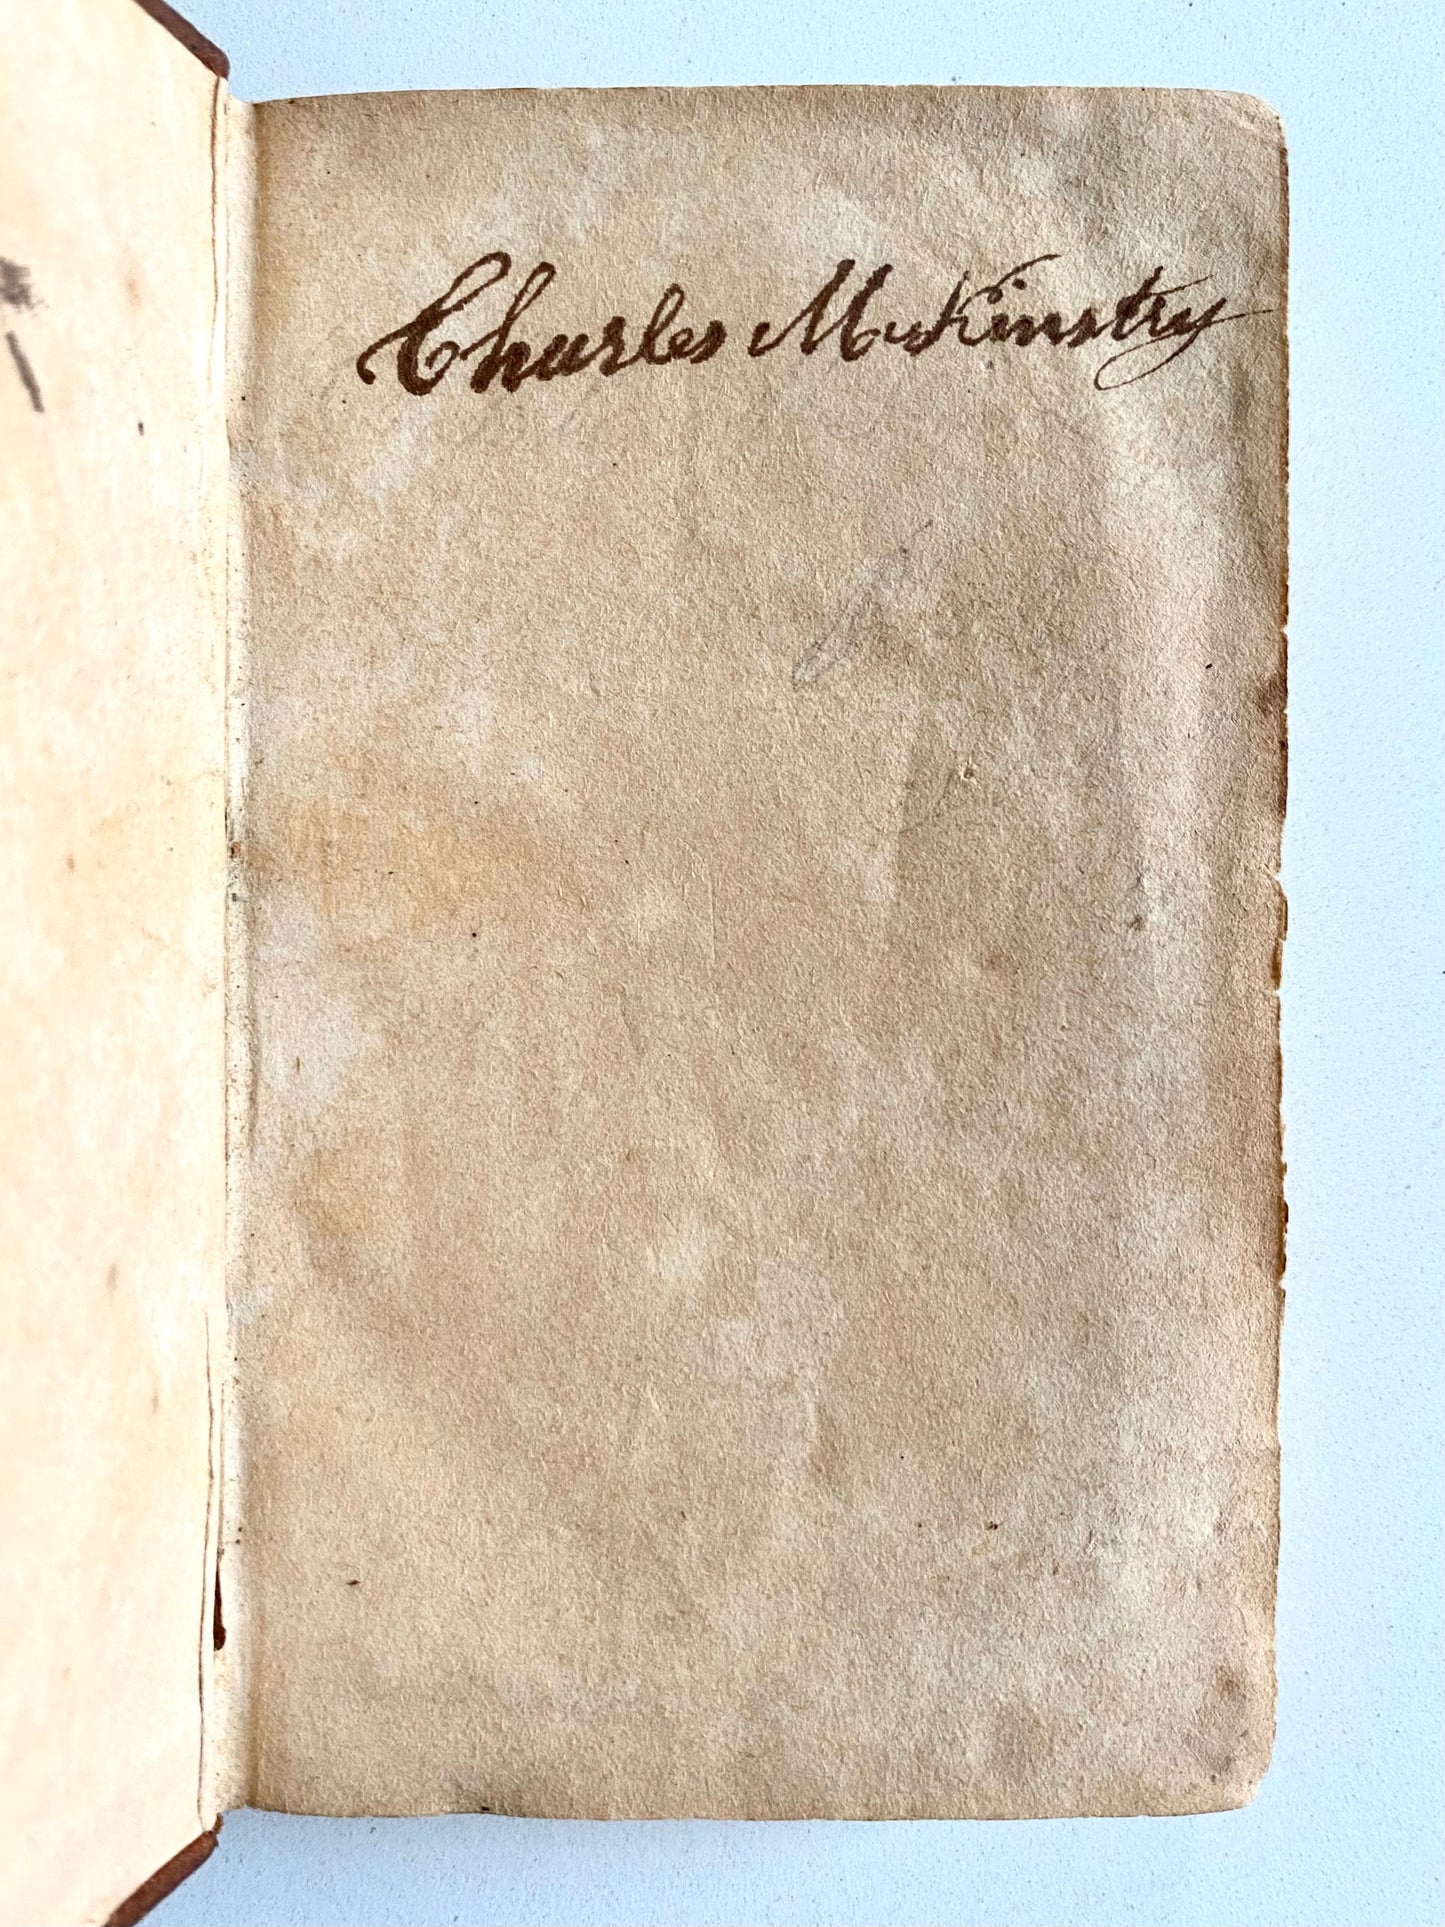 Charles McKinstry